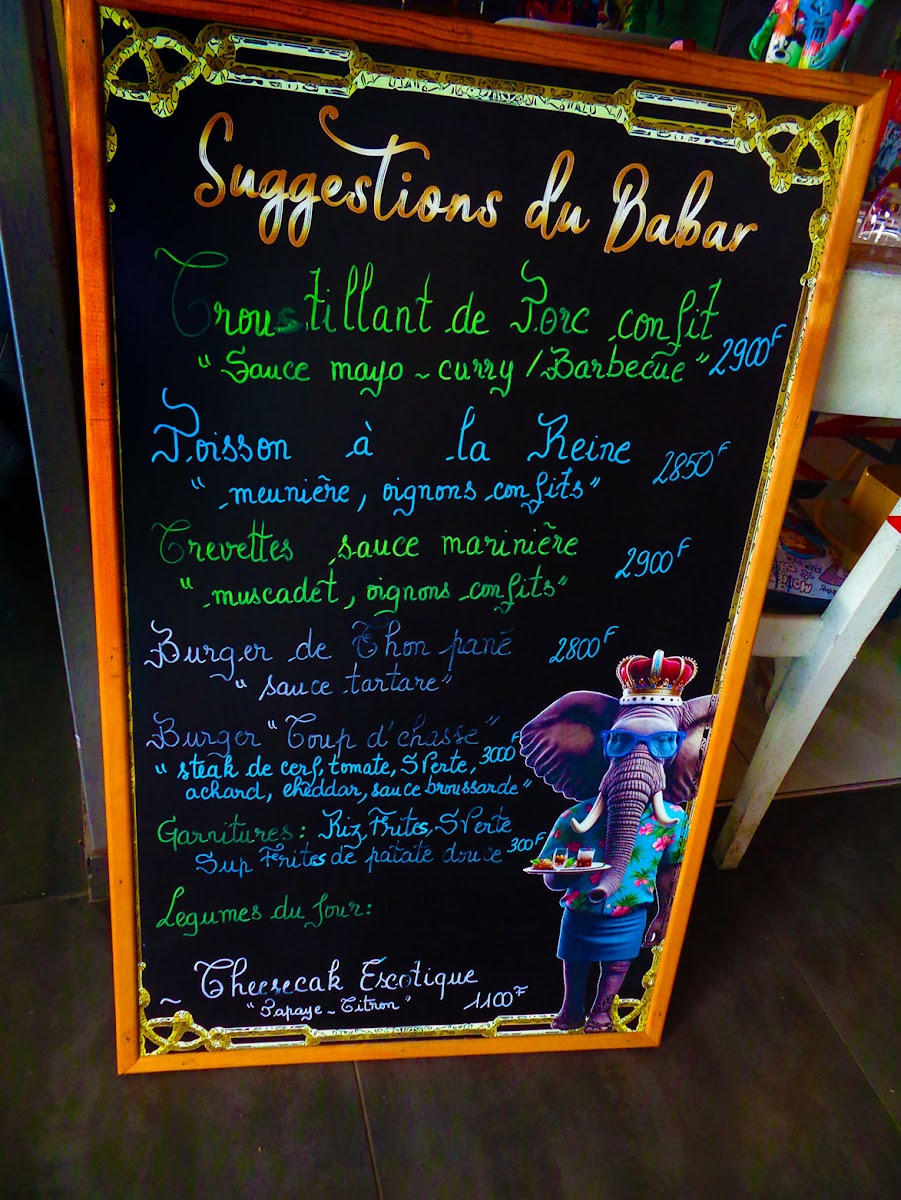 Suggestions du Babar
Croustillant de Porc confit
"Sauce mayo ~ curry / Barbecue" 2900F
Poisson à la Reine 2850F
"meunière, oignons confits"
Crevettes sauce marinière 2900F
"muscadet, oignons confits"
Burger de Thon pané 2800F
"sauce tartare"
Burger "Coup d'chasse"
"steak de cerf, tomate, S Verte, 3000F
achard, cheddar, sauce broussarde"
Garnitures: Riz, Frites, S Verte
Sup Frites de patate douce 300F
Légumes du Jour:
~ Cheesecak Exotique
"Papaye ~ Citron" 1100F